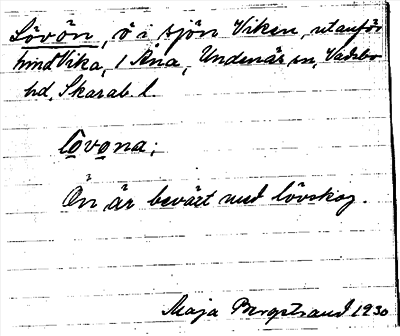 Lövön, ö i sjön Viken, utanför
hmd Vika, 1 Åna, Undenäs sn, Vadsbo
hd, Skarab. l.
lövona;
Ön är beväxt med lövskog.
Maja Bergstrand 1930